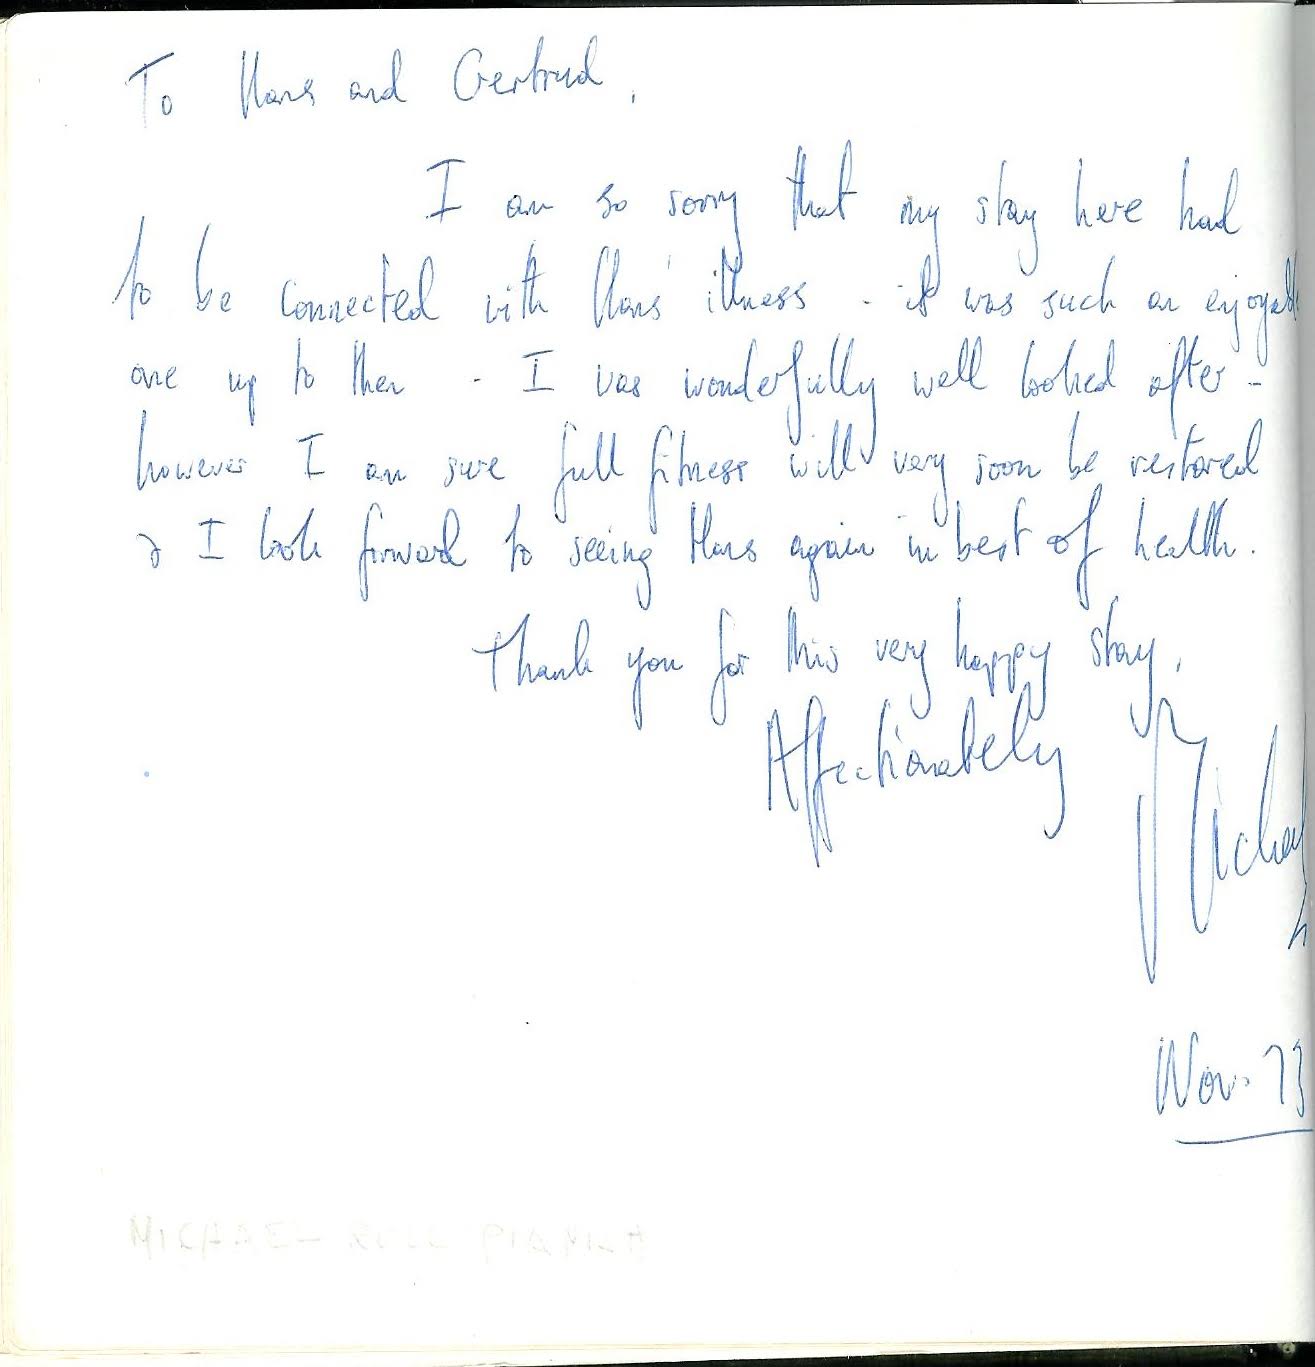 To Hans and Gertrud,
I am so sorry that my stay here had
to be connected with Hans' illness - it was such an enjoyabl
one up to then - I was wonderfully well looked after -
however I am sure full fitness will very soon be restored
& I look forward to seeing Hans again in best of health.
Thank you for this very happy stay,
Affectionately
Michael
Nov. 73
MICHAEL ROLL PIANIST